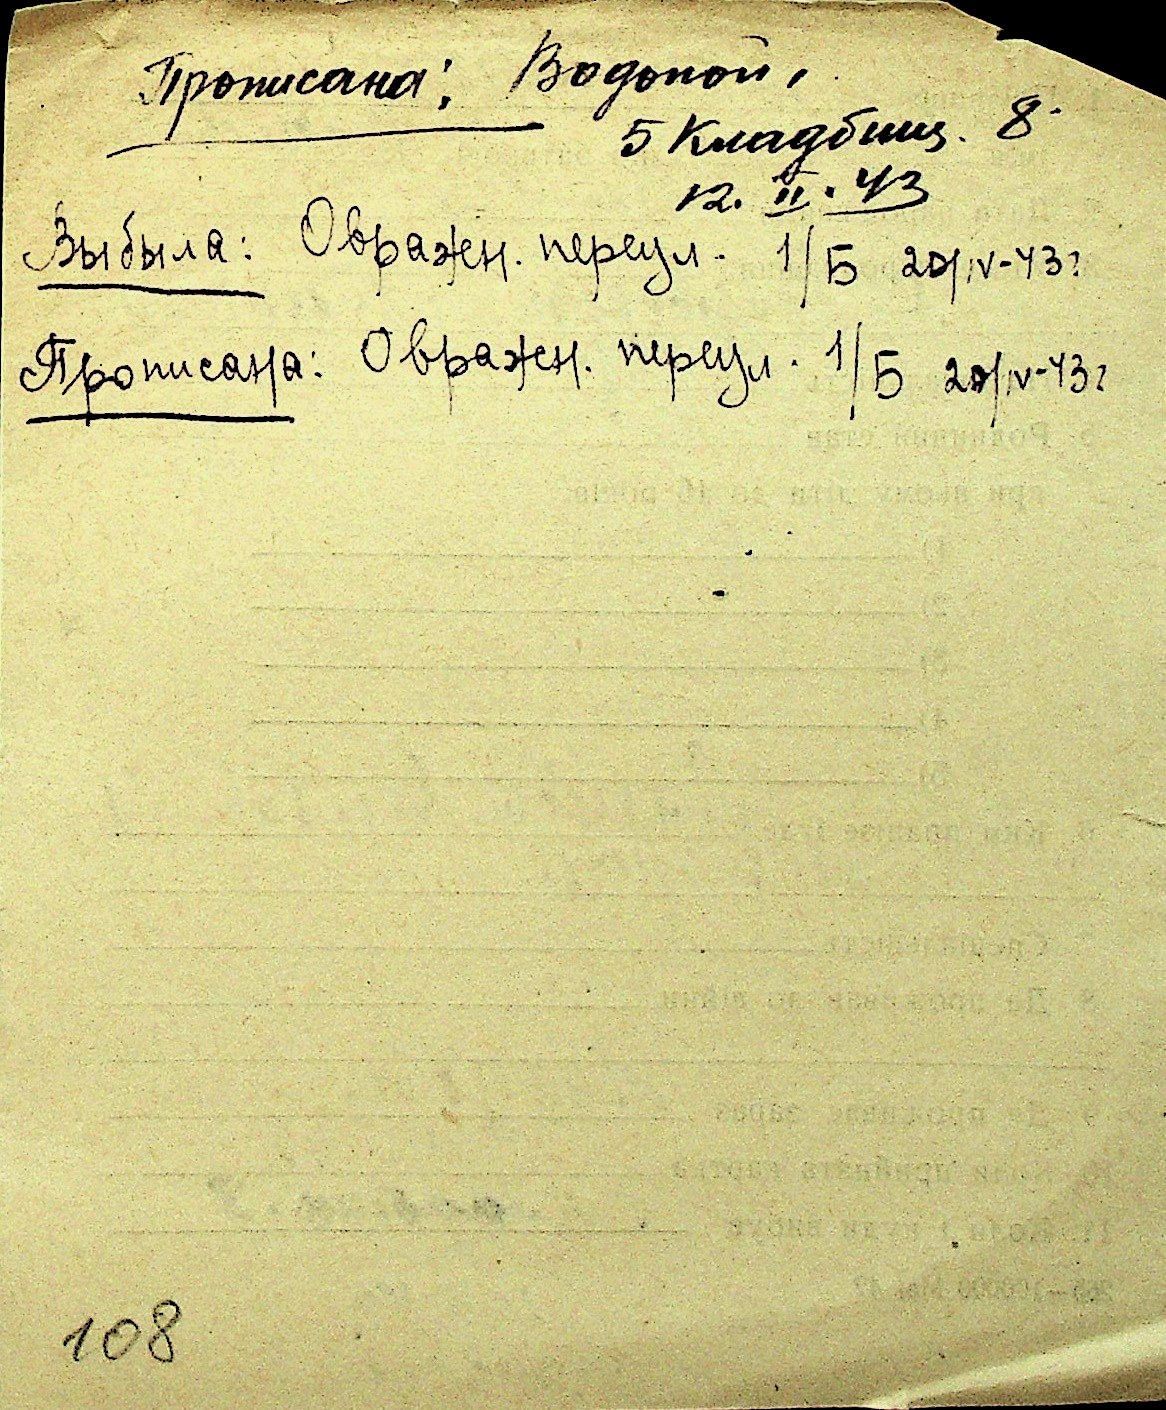 Прописана: Водопой,
5 Кладбищ. 8.
12. II. 43
Выбыла: Овражн. переул. 1/Б 20/IV-43г
Прописана: Овражн. переул. 1/Б 20/IV-43г
108